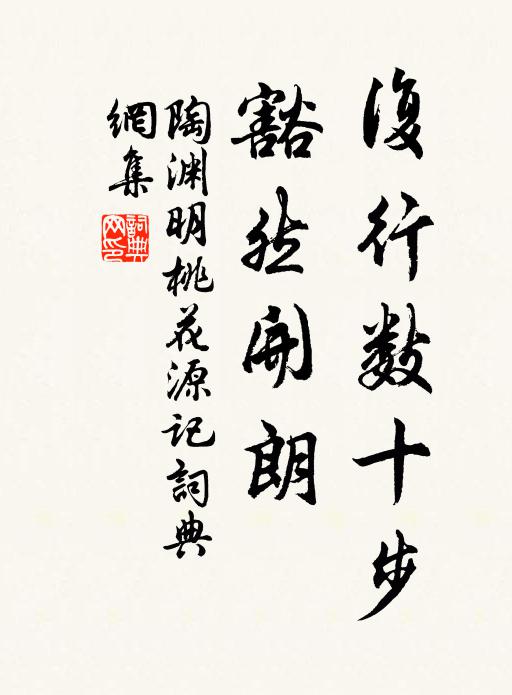 復行數十步
豁然開朗
陶渊明桃花源記詞典
網集
詞典
网印